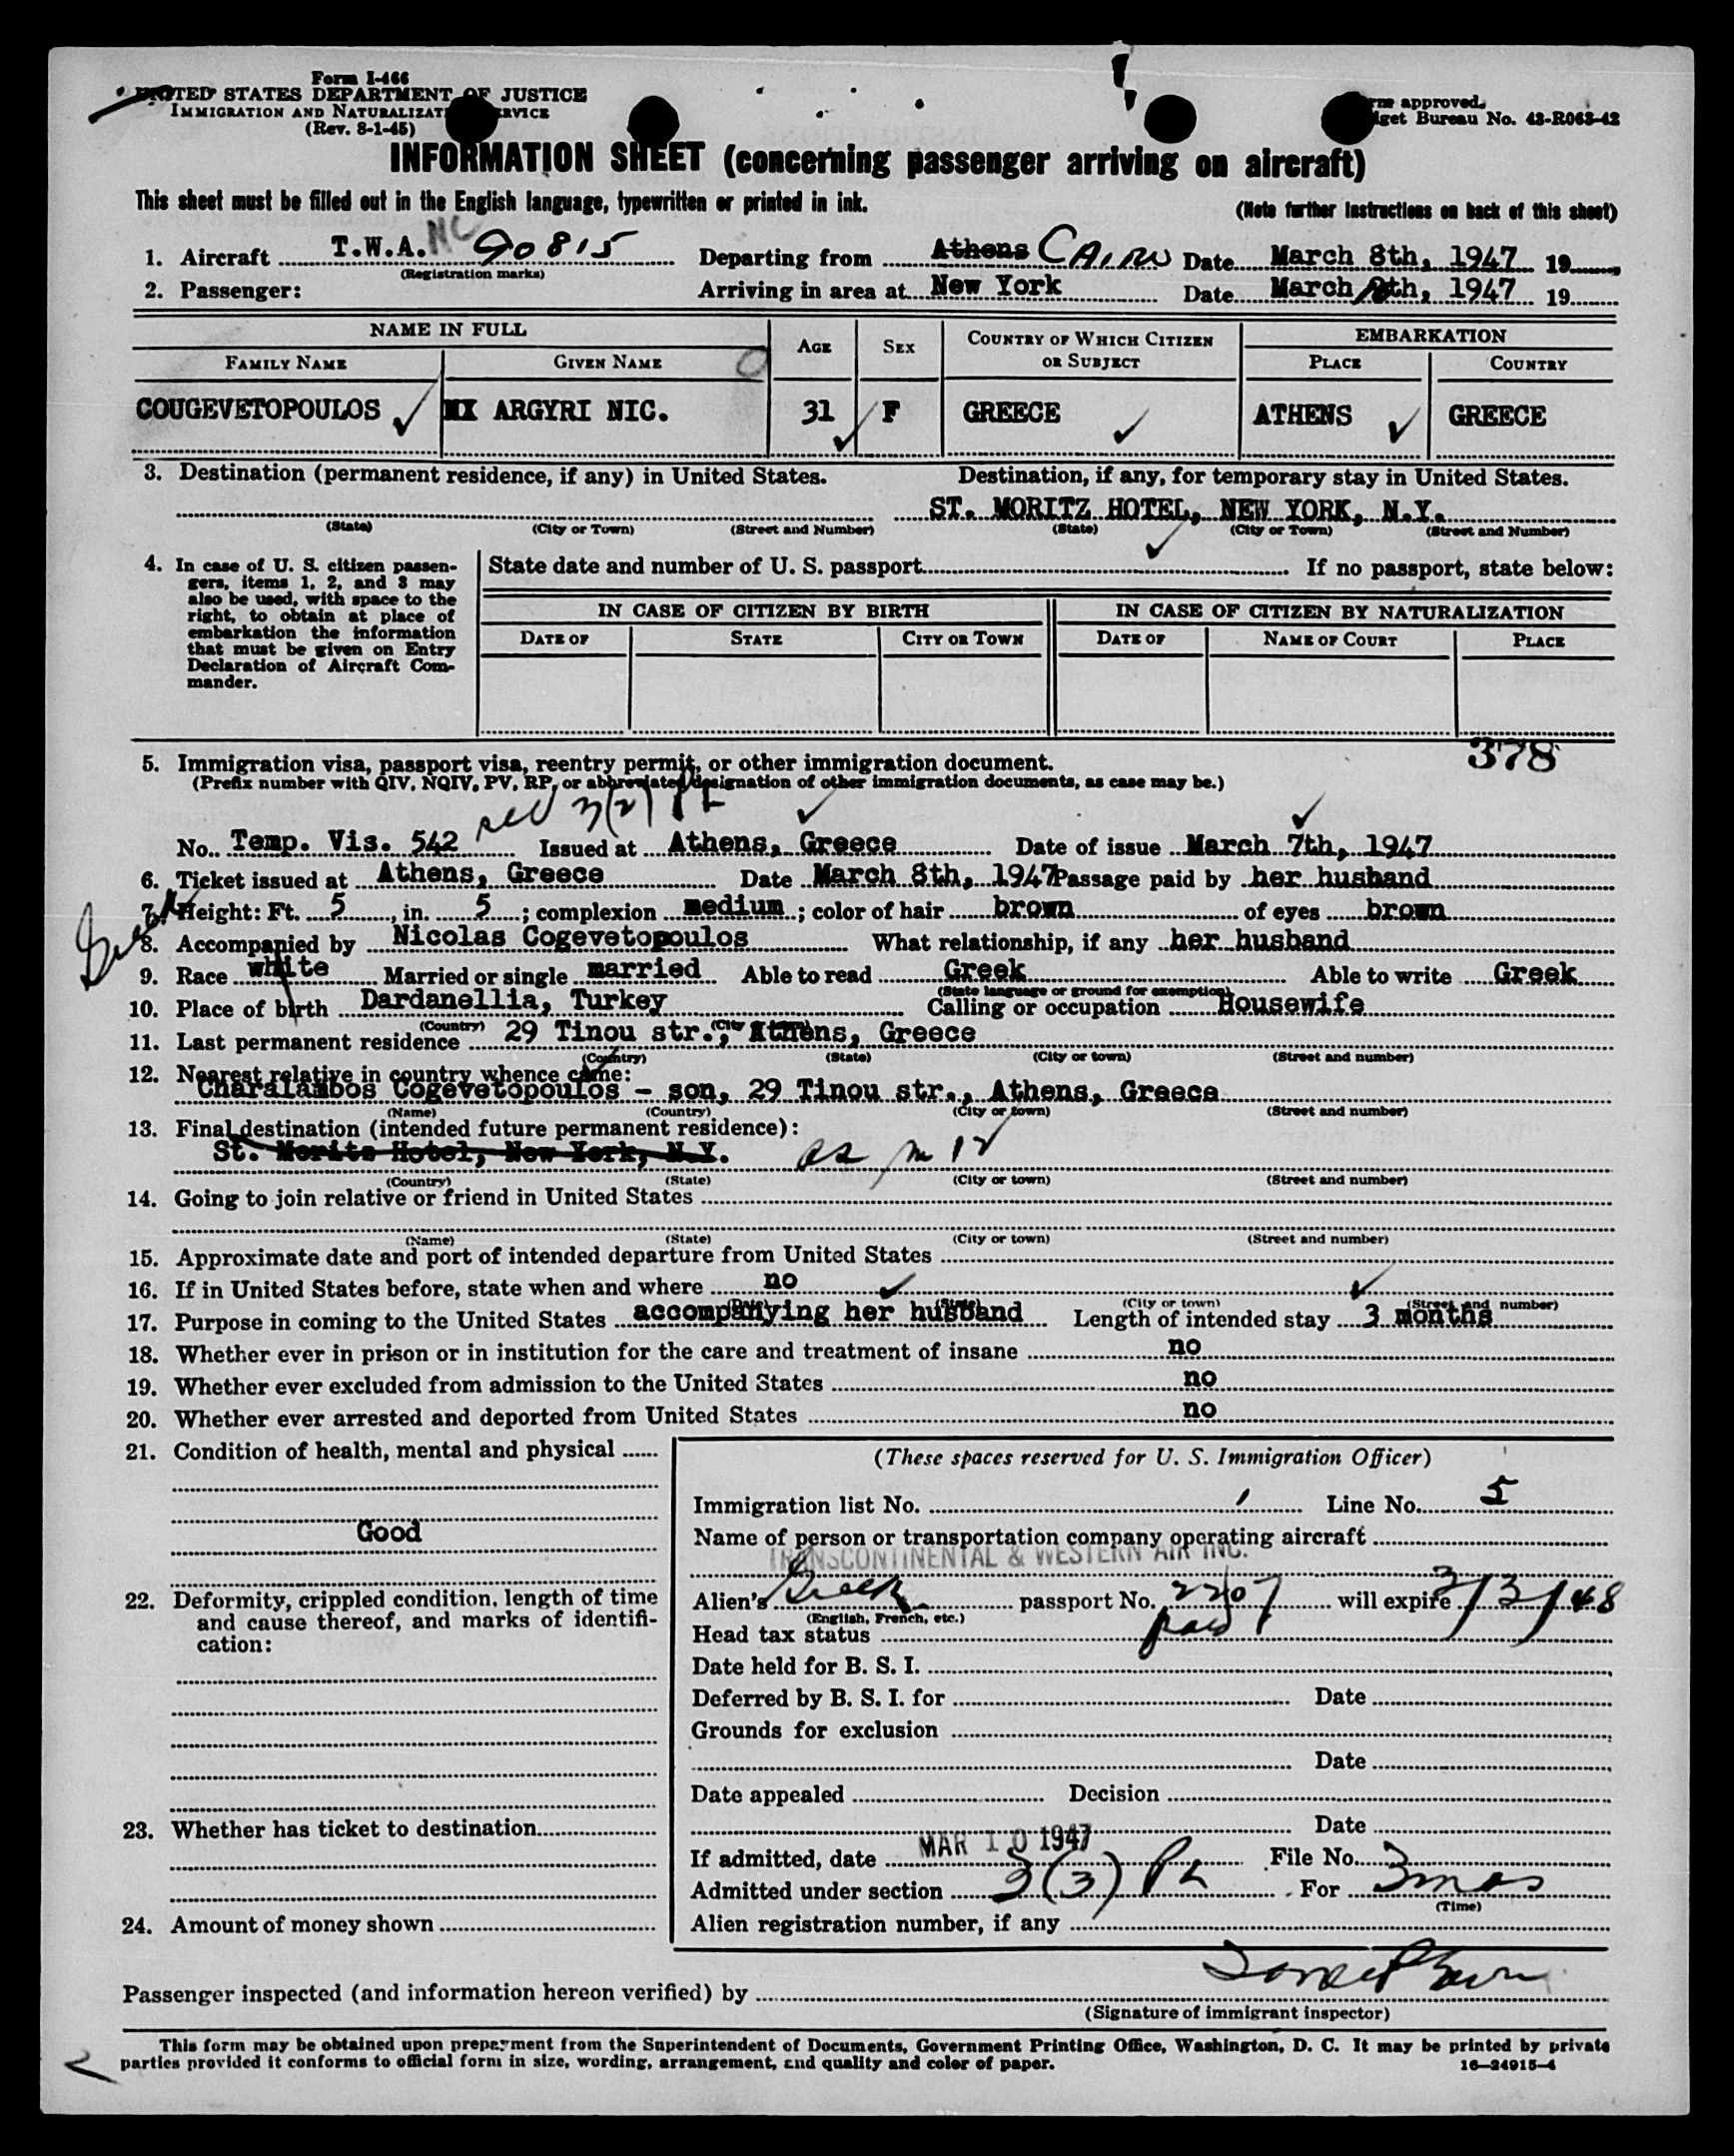 Form I-466
UNITED STATES DEPARTMENT OF JUSTICE
IMMIGRATION AND NATURALIZATION SERVICE
(Rev. 8-1-45)
Form approved.
Budget Bureau No. 43-R063-42
INFORMATION SHEET (concerning passenger arriving on aircraft)
This sheet must be filled out in the English language, typewritten or printed in ink.
(Note further instructions on back of this sheet)
1. Aircraft T.W.A. NC 90815 Departing from Athens CAIRO Date March 8th, 1947 19
(Registration marks)
2. Passenger: Arriving in area at New York Date March 10th, 1947 19
NAME IN FULL AGE SEX COUNTRY OF WHICH CITIZEN OR SUBJECT EMBARKATION
FAMILY NAME GIVEN NAME PLACE COUNTRY
COUGEVETOPOULOS ARGYRI NIC. 31 F GREECE ATHENS GREECE
3. Destination (permanent residence, if any) in United States. Destination, if any, for temporary stay in United States.
ST. MORITZ HOTEL, NEW YORK, N.Y.
(State) (City or Town) (Street and Number) (State) (City or Town) (Street and Number)
4. In case of U. S. citizen passengers, items 1, 2, and 3 may also be used, with space to the right, to obtain at place of embarkation the information that must be given on Entry Declaration of Aircraft Commander.
State date and number of U. S. passport If no passport, state below:
IN CASE OF CITIZEN BY BIRTH IN CASE OF CITIZEN BY NATURALIZATION
DATE OF STATE CITY OR TOWN DATE OF NAME OF COURT PLACE
378
5. Immigration visa, passport visa, reentry permit, or other immigration document.
(Prefix number with QIV, NQIV, PV, RP, or abbreviated designation of other immigration documents, as case may be.)
3(2)
No. Temp. Vis. 542 Issued at Athens, Greece Date of issue March 7th, 1947
6. Ticket issued at Athens, Greece Date March 8th, 1947 Passage paid by her husband
7. Height: Ft. 5, in. 5; complexion medium; color of hair brown of eyes brown
Greek
8. Accompanied by Nicolas Cogevetopoulos What relationship, if any her husband
9. Race white Married or single married Able to read Greek Able to write Greek
(State language or ground for exemption)
10. Place of birth Dardanellia, Turkey Calling or occupation Housewife
(Country) (City
11. Last permanent residence 29 Tinou str., Athens, Greece
(Country) (State) (City or town) (Street and number)
12. Nearest relative in country whence came:
Charalambos Cogevetopoulos - son, 29 Tinou str., Athens, Greece
(Name) (Country) (City or town) (Street and number)
13. Final destination (intended future permanent residence):
St. Moritz Hotel, New York, N.Y. as in 12
(Country) (State) (City or town) (Street and number)
14. Going to join relative or friend in United States
(Name) (State) (City or town) (Street and number)
15. Approximate date and port of intended departure from United States
16. If in United States before, state when and where no
(State) (City or town) (Street and number)
17. Purpose in coming to the United States accompanying her husband Length of intended stay 3 months
18. Whether ever in prison or in institution for the care and treatment of insane no
19. Whether ever excluded from admission to the United States no
20. Whether ever arrested and deported from United States no
21. Condition of health, mental and physical
Good
22. Deformity, crippled condition, length of time and cause thereof, and marks of identification:
23. Whether has ticket to destination
24. Amount of money shown
(These spaces reserved for U. S. Immigration Officer)
Immigration list No. 1 Line No. 5
Name of person or transportation company operating aircraft
TRANSCONTINENTAL & WESTERN AIR INC.
Alien's Greek passport No. 2207 will expire 3/3/48
(English, French, etc.)
Head tax status paid
Date held for B. S. I.
Deferred by B. S. I. for Date
Grounds for exclusion
Date
Date appealed Decision
Date
If admitted, date MAR 10 1947 File No.
Admitted under section 3(3) For 3 mos
(Time)
Alien registration number, if any
Passenger inspected (and information hereon verified) by
(Signature of immigrant inspector)
This form may be obtained upon prepayment from the Superintendent of Documents, Government Printing Office, Washington, D. C. It may be printed by private
parties provided it conforms to official form in size, wording, arrangement, and quality and color of paper.
16—24915-4